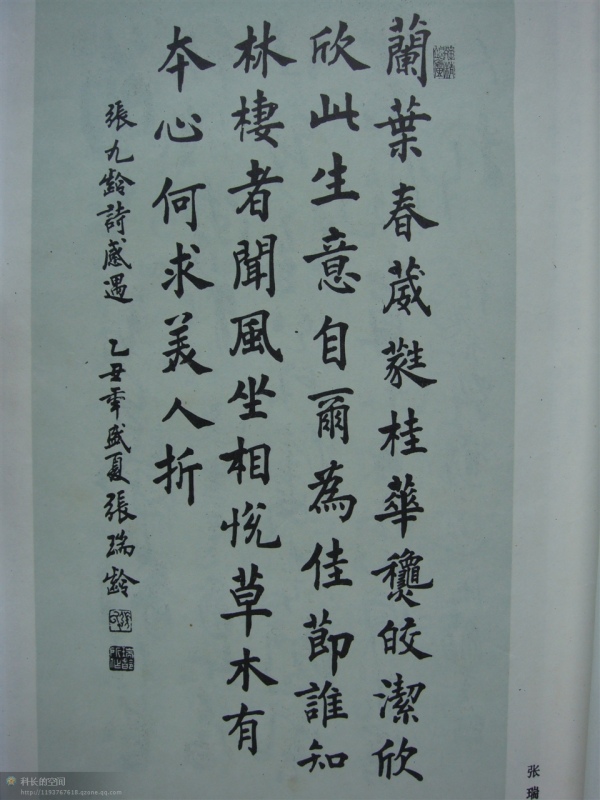 蘭葉春葳蕤桂華龝皎潔欣
欣此生意自爾為佳節誰知
林棲者聞風坐相悅草木有
夲心何求美人折
張九齡詩感遇 乙丑年盛夏張瑞齡
张瑞
科长的空间
http://1193767618.qzone.qq.com